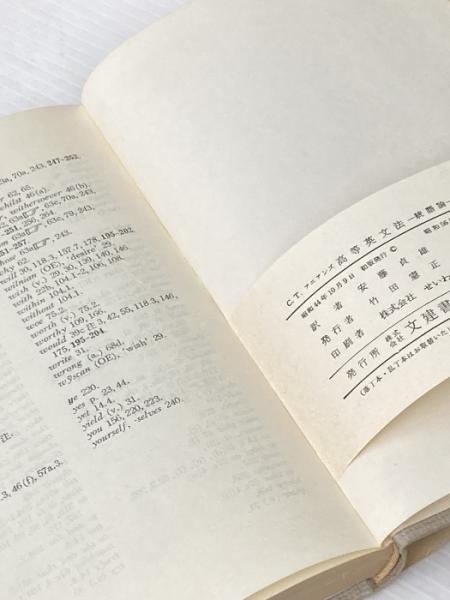 3a, 70a, 243, 247-252.
62, 68.
whilst 46 (a).
withersoever 46 (b).
63e, 70a, 243,
251, 256, 264.
63e, 79, 243,
251-257.
whose 243.
why 62.
will 30, 118.3, 157.7, 178, 195-202
wilnian (OE), 'desire' 29.
wish (v.) 29, 30, 139, 140, 146.
with 102b, 104.1-2, 106, 108.
within 104.1.
without 104.1.
woe 75.2.
worth (v.) 75.2.
worthy 109, 166.
would 39:注3, 42, 55, 118.3, 146,
175, 195-204.
write 31.
wrong (a.) 68d.
wȳscan (OE), 'wish' 29.
ye 230.
yes P. 23, 44.
yet 14.4.
yield (v.) 31.
you 150, 220, 223.
yourself, -selves 240.
注.
3, 46 (f), 57a,3.
C.T. アニアンズ 高等英文法―統語論―
昭和44年10月9日 初版発行 ©
昭和56
訳者 安藤貞雄
発行者 竹田 正
印刷者 株式会社 せいわ
発行所 株式会社 文建書
(落丁本・乱丁本はお取替いた